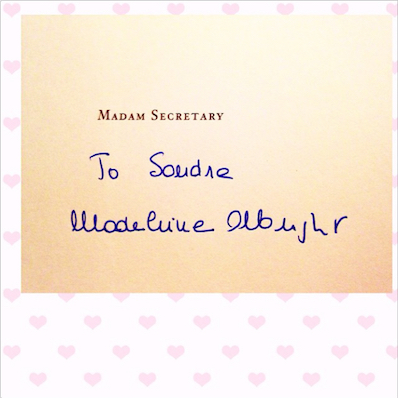 MADAM SECRETARY
To Sandra
Madeleine Albright